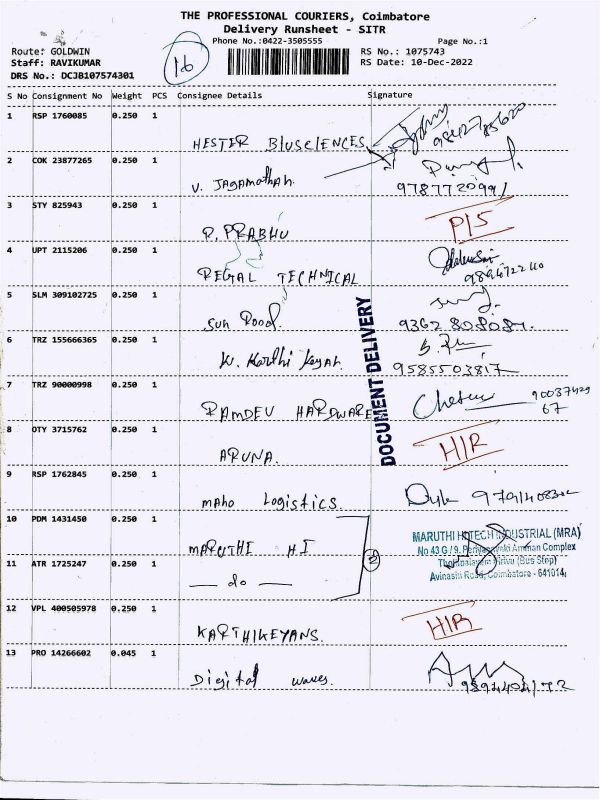 THE PROFESSIONAL COURIERS, Coimbatore
Delivery Runsheet - SITR
Phone No.:0422-3505555 Page No.:1
Route: GOLDWIN
Staff: RAVIKUMAR
DRS No.: DCJB107574301
RS No.: 1075743
RS Date: 10-Dec-2022
16
S No Consignment No Weight PCS Consignee Details Signature
1 RSP 1760085 0.250 1
HESTER BIUSCIENCES
2 COK 23877265 0.250 1
V. Jaganathan. 9787720991
3 STY 825943 0.250 1
R. PRABHU P/S
4 UPT 2115206 0.250 1
REGAL TECHNICAL
5 SLM 309102725 0.250 1
Sun Rood. 9362808087.
6 TRZ 155666365 0.250 1
K. Karthi Keyan. 9585503817
7 TRZ 90000998 0.250 1
RAMDEV HARDWARE
90037429
67
8 OTY 3715762 0.250 1
ARUNA. H/R
9 RSP 1762845 0.250 1
maho Logistics.
DOCUMENT DELIVERY
10 PDM 1431450 0.250 1
MARUTHI H.I
11 ATR 1725247 0.250 1
— do — 2
MARUTHI HITECH INDUSTRIAL (MRA)
No 43 G / 9, Amman Complex
(Bus Stop)
Avinashi Road, Coimbatore - 641014.
12 VPL 400505978 0.250 1
KARTHIKEYANS. H/R
13 PRO 14266602 0.045 1
Digital waves. 9894404172